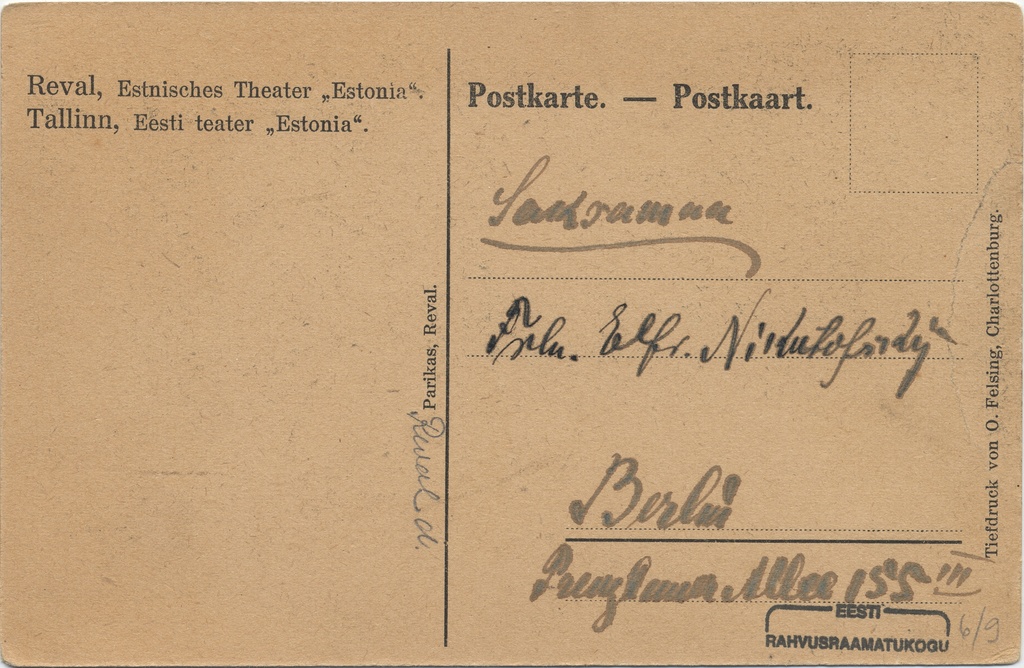 Reval, Estnisches Theater „Estonia“.
Tallinn, Eesti teater „Estonia“.
Parikas, Reval.
Reval d.
Postkarte. — Postkaart.
Frln. Elfr.
Berlin
Prenzlauer Allee 155 III
Tiefdruck von O. Felsing, Charlottenburg.
EESTI
RAHVUSRAAMATUKOGU
6/9